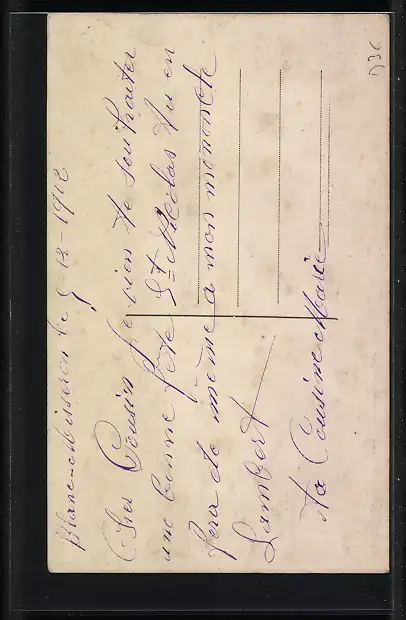 Blanc-Misseron le 5-12-1912
Cher Cousin je vien te souhaiter
une bonne fête St Nicolas tu en
fera de même a mon mononcle
Lambert
Ta Cousine Marie
D36